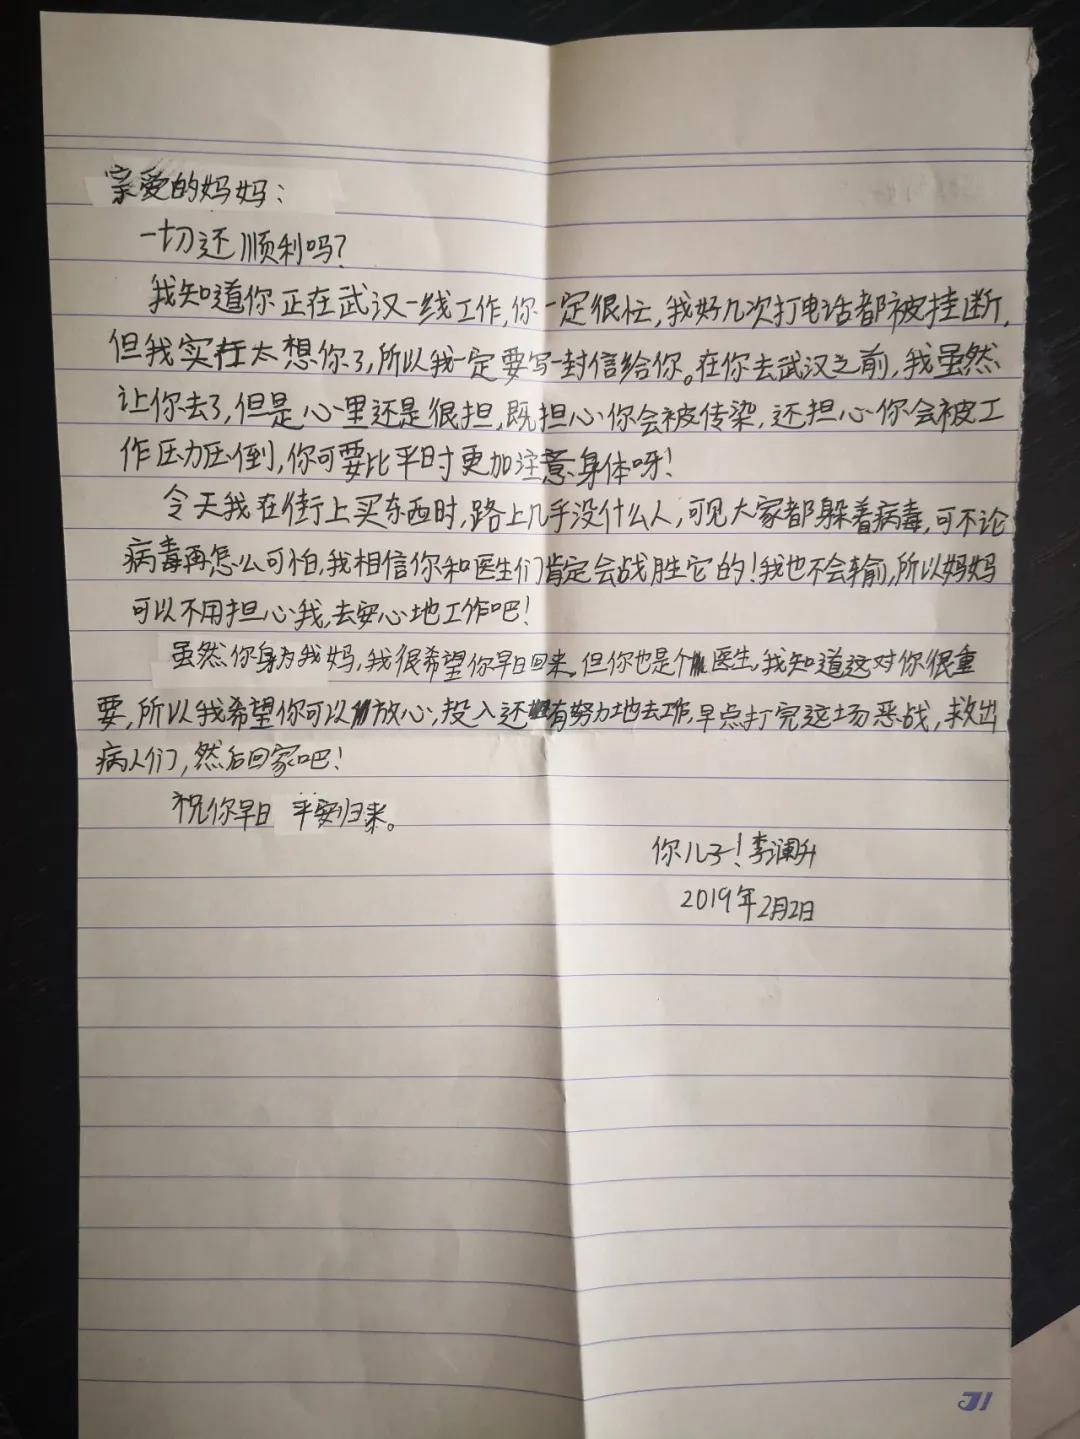 亲爱的妈妈：
一切还顺利吗？
我知道你正在武汉一线工作，你一定很忙，我好几次打电话都被挂断，
但我实在太想你了，所以我一定要写一封信给你。在你去武汉之前，我虽然
让你去了，但是心里还是很担，既担心你会被传染，还担心你会被工
作压力压倒，你可要比平时更加注意身体呀！
今天我在街上买东西时，路上几乎没什么人，可见大家都躲着病毒，可不论
病毒再怎么可怕，我相信你和医生们肯定会战胜它的！我也不会输，所以妈妈
可以不用担心我，去安心地工作吧！
虽然你身为我妈，我很希望你早日回来。但你也是个医生，我知道这对你很重
要，所以我希望你可以放心，投入还有努力地去工作，早点打完这场恶战，救出
病人们，然后回家吧！
祝你早日 平安归来。
你儿子！李澜升
2019年2月2日